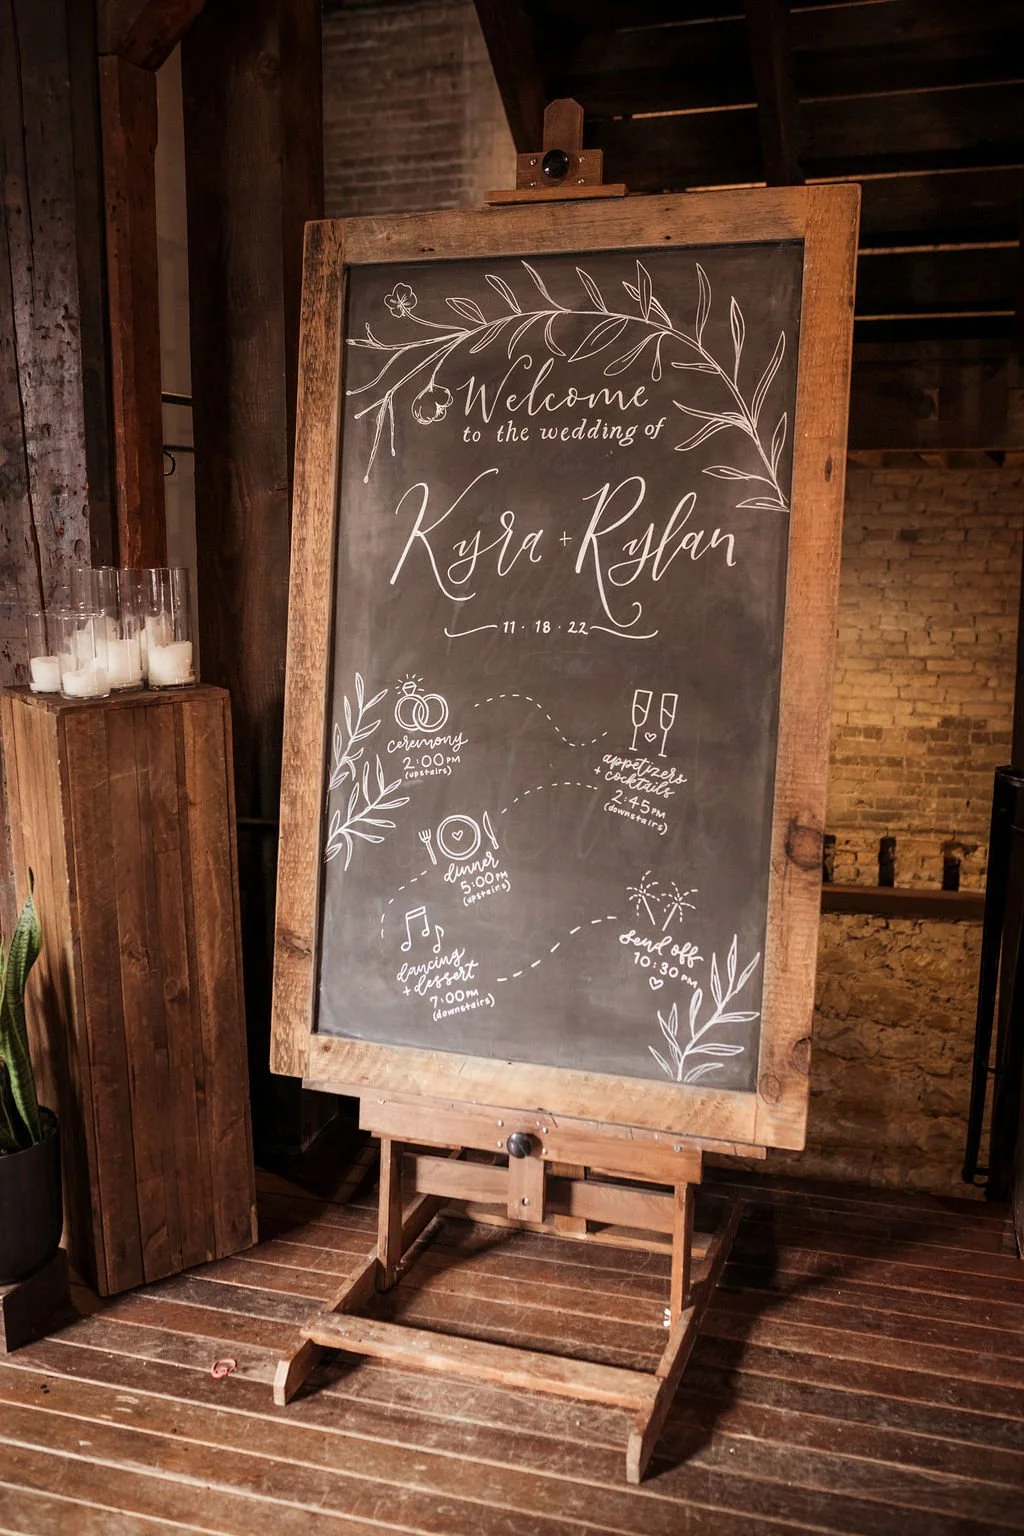 Welcome
to the wedding of
Kyra + Rylan
11 · 18 · 22
ceremony
2:00 PM
(upstairs)
appetizers
+ cocktails
2:45 PM
(downstairs)
dinner
5:00 PM
(upstairs)
dancing
+ dessert
7:00 PM
(downstairs)
send off
10:30 PM